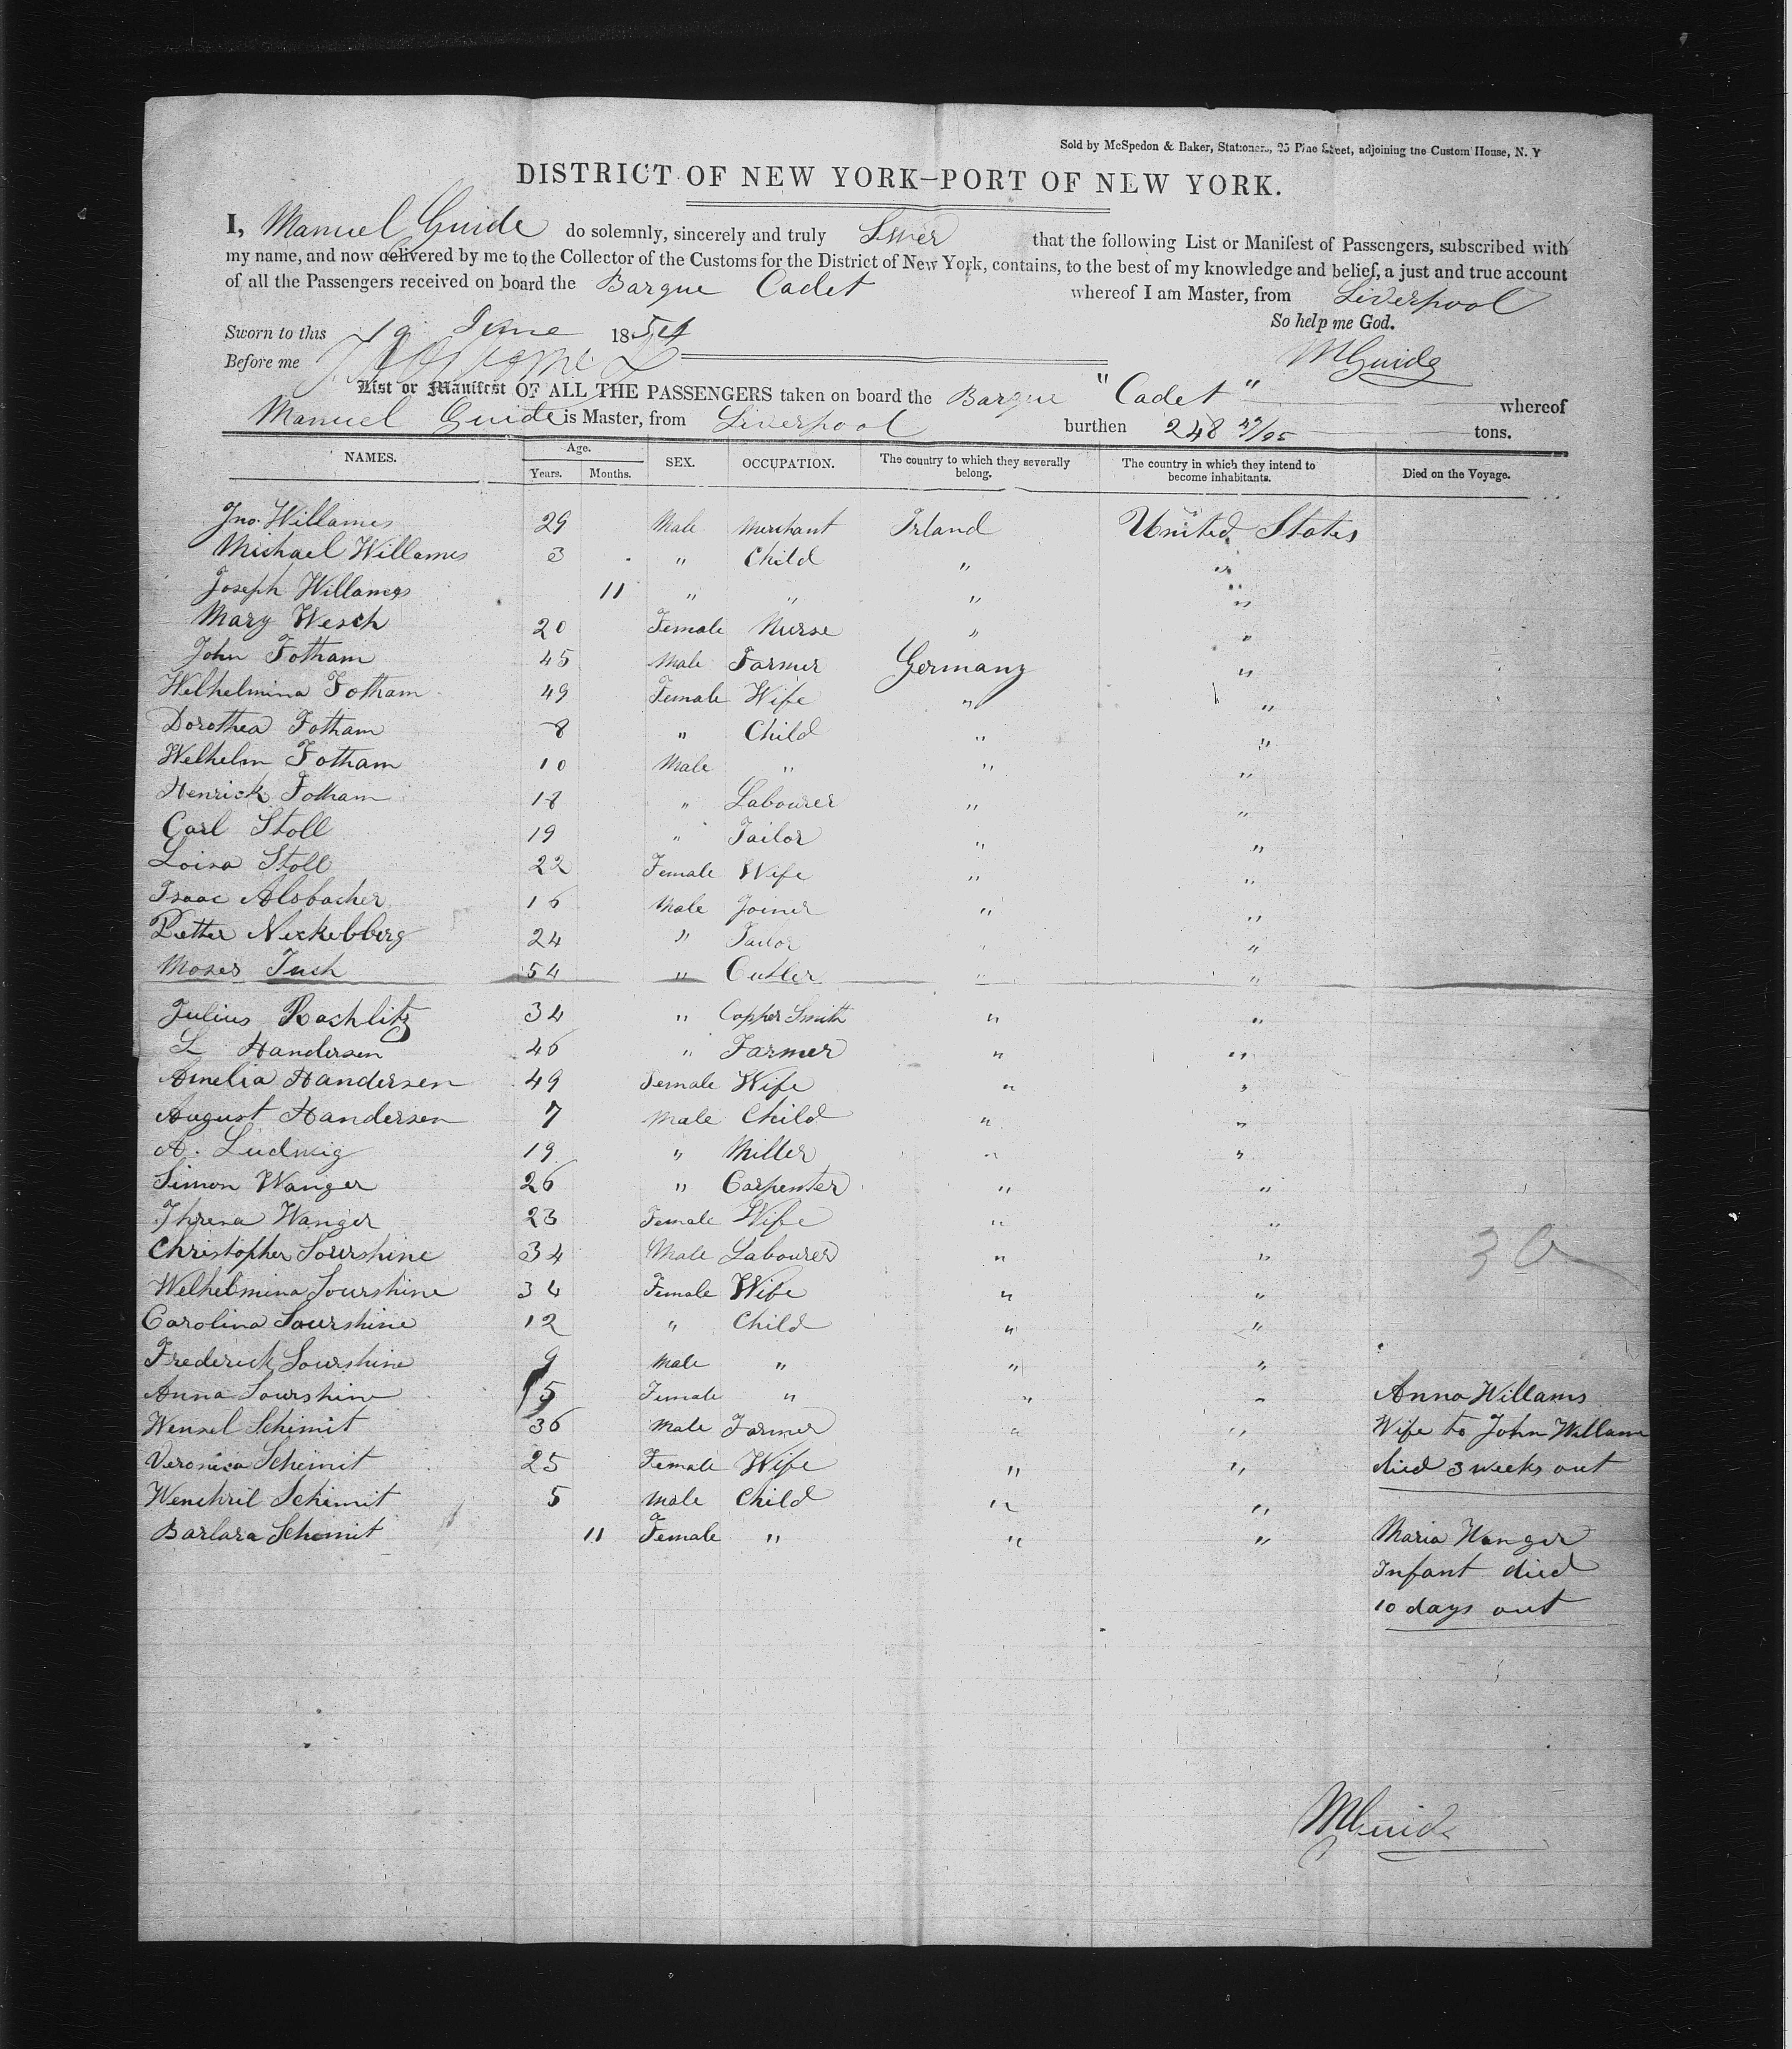 Sold by McSpedon & Baker, Stationers, 25 Pine Street, adjoining the Custom House, N. Y
DISTRICT OF NEW YORK—PORT OF NEW YORK.
I, Manuel Guide do solemnly, sincerely and truly Swer that the following List or Manifest of Passengers, subscribed with
my name, and now delivered by me to the Collector of the Customs for the District of New York, contains, to the best of my knowledge and belief, a just and true account
of all the Passengers received on board the Barque Cadet whereof I am Master, from Liverpool
So help me God.
Sworn to this 19 June 1854
Before me
MGuide
List or Manifest OF ALL THE PASSENGERS taken on board the Barque "Cadet" whereof
Manuel Guide is Master, from Liverpool burthen 248 47/95 tons.
NAMES. Age. Years. Months. SEX. OCCUPATION. The country to which they severally belong. The country in which they intend to become inhabitants. Died on the Voyage.
Jno. Willames 29 Male Merchant Irland United States
Michael Willames 3 " Child " "
Joseph Willames 11 " " " "
Mary Wesch 20 Female Nurse " "
John Fotham 45 Male Farmer Germany "
Welhelmina Fotham 49 Female Wife " "
Dorothea Fotham 8 " Child " "
Welhelm Fotham 10 Male " " "
Henrick Fotham 18 " Labourer " "
Carl Stoll 19 " Tailor " "
Loisa Stoll 22 Female Wife " "
Isaac Alsbacher 16 Male Joiner " "
Petter Neckebberg 24 " Tailor " "
Moses Tuch 54 " Cutler " "
Julius Rachlitz 34 " Copper Smith " "
L Handersen 46 " Farmer " "
Amelia Handersen 49 Female Wife " "
August Handersen 7 Male Child " "
A. Ludwig 19 " Miller " "
Simon Wanger 26 " Carpenter " "
Threna Wanger 23 Female Wife " "
Christopher Sourshine 34 Male Labourer " "
Welhelmina Sourshine 34 Female Wife " "
Carolina Sourshine 12 " Child " "
Frederick Sourshine 9 Male " " "
Anna Sourshine 5 Female " " " Anna Willams
Wensel Schimit 36 Male Farmer " " Wife to John Willams
Veronica Schimit 25 Female Wife " " died 3 weeks out
Wenchril Schimit 5 Male Child " "
Barbara Schimit 11 Female " " " Maria Wanger
Infant died
10 days out
MGuide